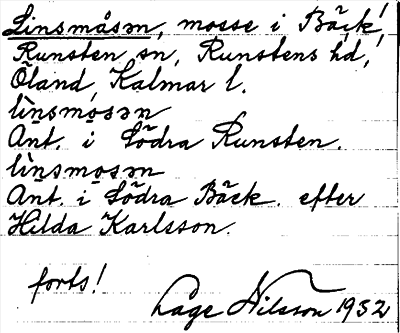 Linsmåsən, mosse i Bäck!,
Runsten sn, Runstens hd,
Öland, Kalmar l.
lìnsmosən
Ant. i Södra Runsten.
lìnsmosən
Ant. i Södra Bäck. efter
Hilda Karlsson.
forts!
Lage Nilsson 1932